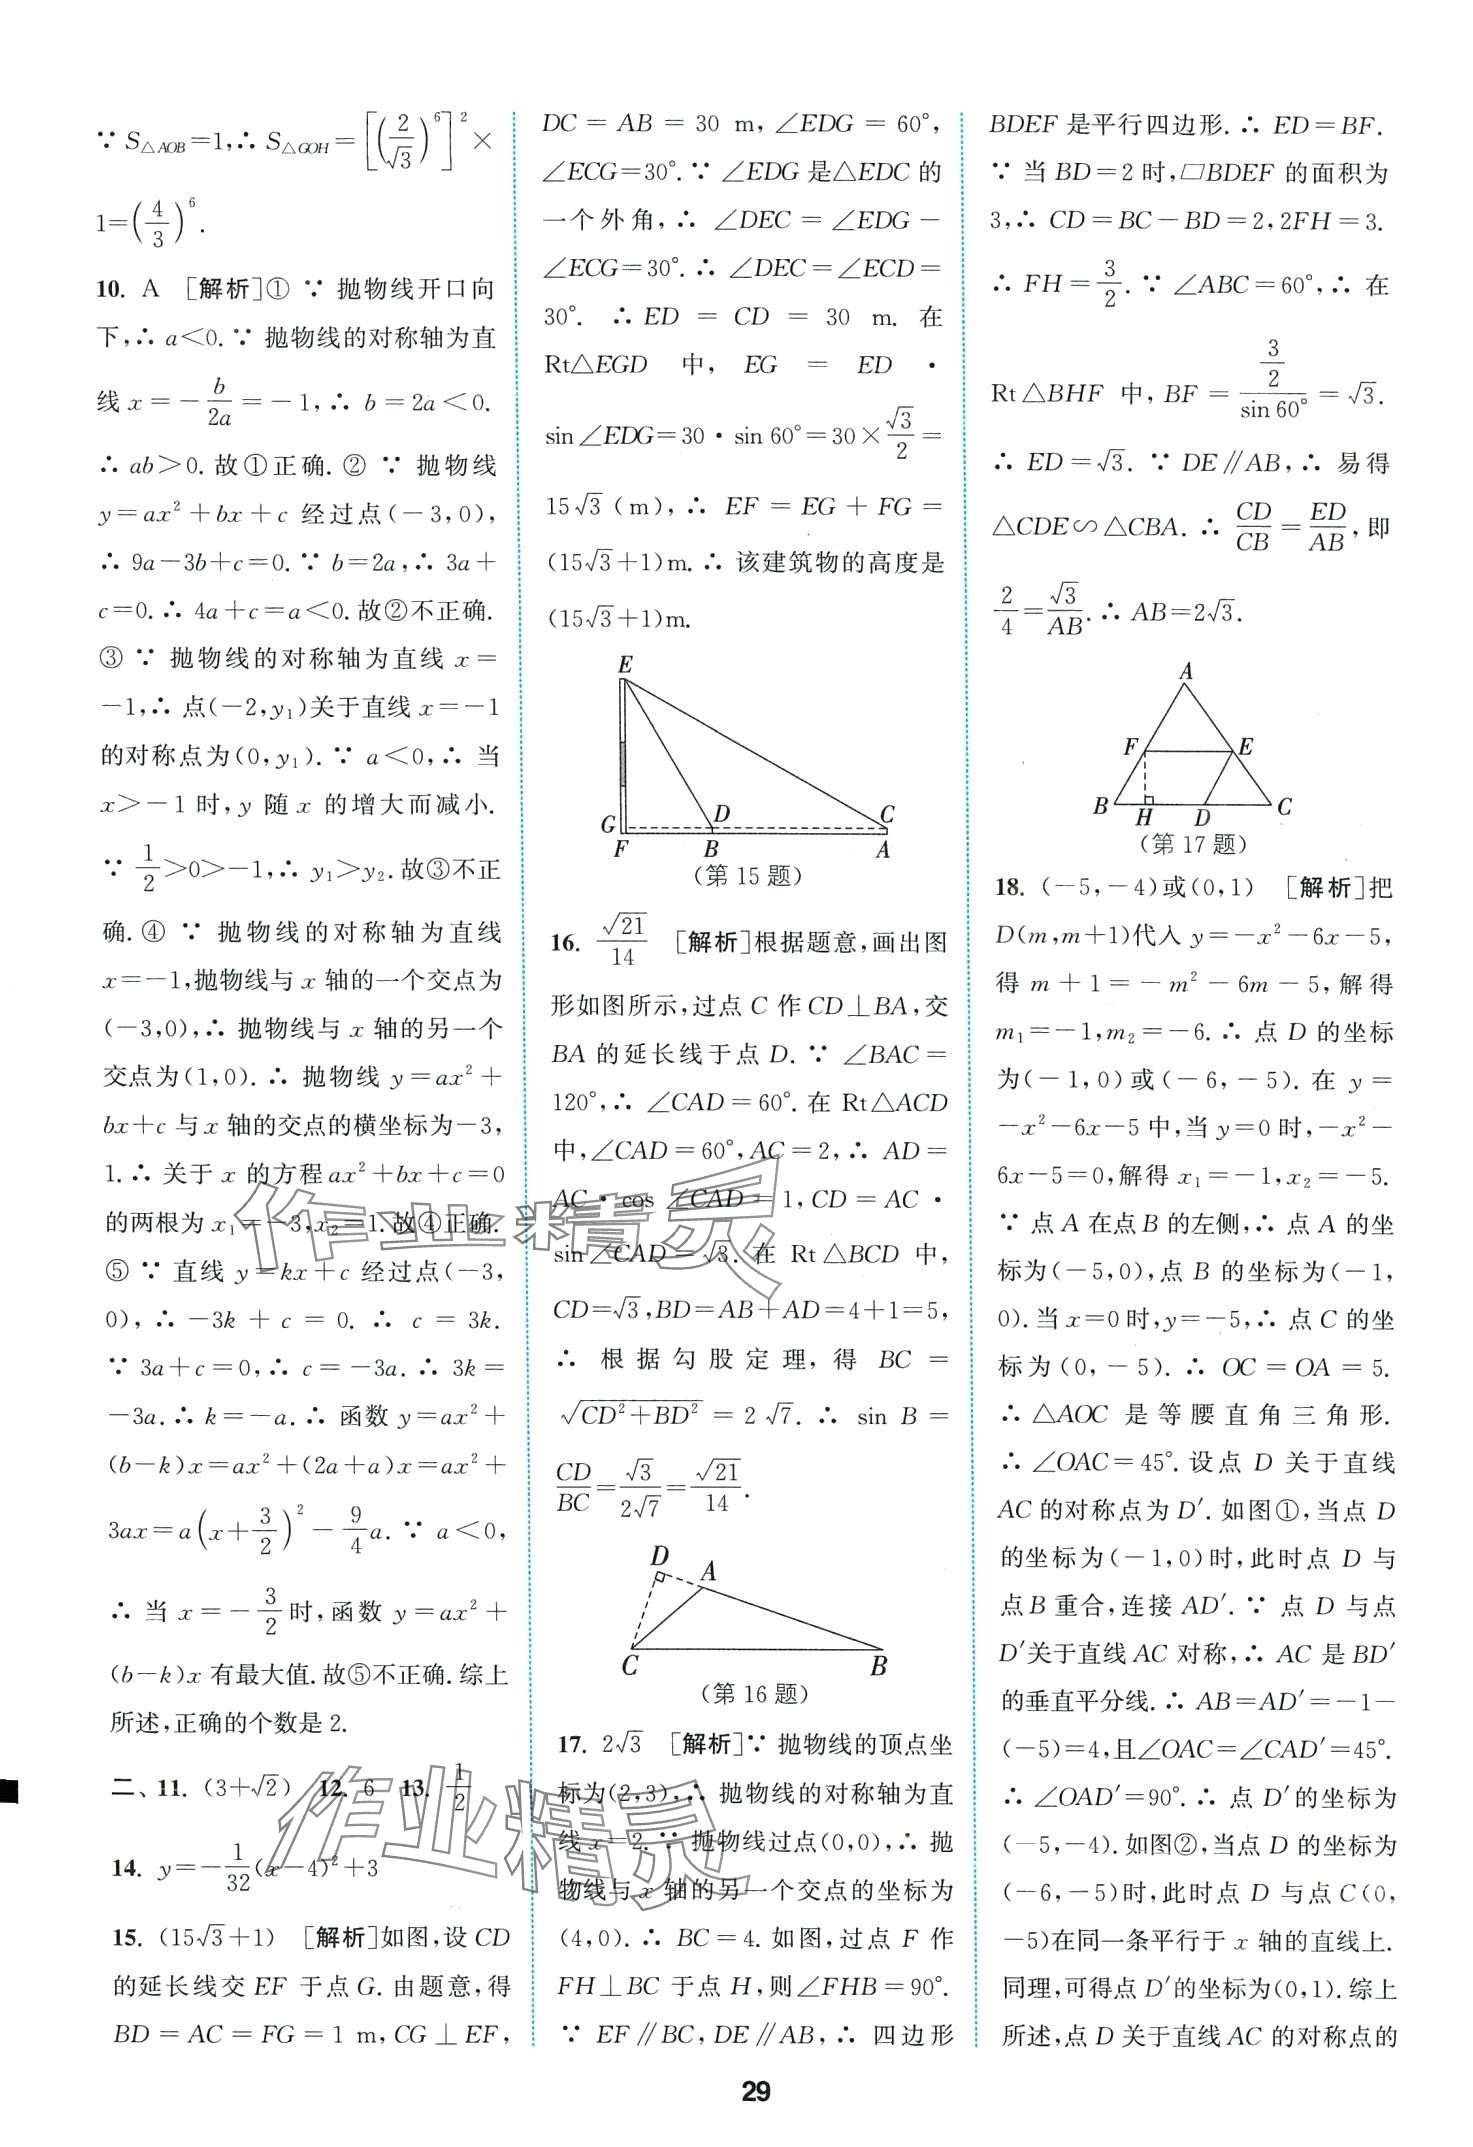 ∵ S△AOB=1,∴ S△GOH=[(2/√3)^6]^2×
1=(4/3)^6.
10. A [解析]① ∵ 抛物线开口向
下,∴ a<0.∵ 抛物线的对称轴为直
线 x=-b/2a=-1,∴ b=2a<0.
∴ ab>0.故①正确.② ∵ 抛物线
y=ax²+bx+c 经过点(-3,0),
∴ 9a-3b+c=0.∵ b=2a,∴ 3a+
c=0.∴ 4a+c=a<0.故②不正确.
③ ∵ 抛物线的对称轴为直线 x=
-1,∴ 点(-2,y₁)关于直线 x=-1
的对称点为(0,y₁).∵ a<0,∴ 当
x>-1 时,y 随 x 的增大而减小.
∵ 1/2>0>-1,∴ y₁>y₂.故③不正
确.④ ∵ 抛物线的对称轴为直线
x=-1,抛物线与 x 轴的一个交点为
(-3,0),∴ 抛物线与 x 轴的另一个
交点为(1,0).∴ 抛物线 y=ax²+
bx+c 与 x 轴的交点的横坐标为-3,
1.∴ 关于 x 的方程 ax²+bx+c=0
的两根为 x₁=-3,x₂=1.故④正确.
⑤ ∵ 直线 y=kx+c 经过点(-3,
0),∴ -3k+c=0. ∴ c=3k.
∵ 3a+c=0,∴ c=-3a.∴ 3k=
-3a.∴ k=-a.∴ 函数 y=ax²+
(b-k)x=ax²+(2a+a)x=ax²+
3ax=a(x+3/2)²-9/4a.∵ a<0,
∴ 当 x=-3/2时,函数 y=ax²+
(b-k)x 有最大值.故⑤不正确.综上
所述,正确的个数是 2.
二、11. (3+√2) 12. 6 13. 1/2
14. y=-1/32(x-4)²+3
15. (15√3+1) [解析]如图,设 CD
的延长线交 EF 于点 G.由题意,得
BD=AC=FG=1 m,CG⊥EF,
DC=AB=30 m,∠EDG=60°,
∠ECG=30°.∵ ∠EDG 是△EDC 的
一个外角,∴ ∠DEC=∠EDG-
∠ECG=30°.∴ ∠DEC=∠ECD=
30°. ∴ ED=CD=30 m. 在
Rt△EGD 中,EG=ED·
sin∠EDG=30·sin 60°=30×√3/2=
15√3(m),∴ EF=EG+FG=
(15√3+1)m.∴ 该建筑物的高度是
(15√3+1)m.
E
G
D
C
F
B
A
(第 15 题)
16. √21/14 [解析]根据题意,画出图
形如图所示,过点 C 作 CD⊥BA,交
BA 的延长线于点 D.∵ ∠BAC=
120°,∴ ∠CAD=60°.在 Rt△ACD
中,∠CAD=60°,AC=2,∴ AD=
AC·cos∠CAD=1,CD=AC·
sin∠CAD=√3.在 Rt△BCD 中,
CD=√3,BD=AB+AD=4+1=5,
∴ 根据勾股定理,得 BC=
√(CD²+BD²)=2√7.∴ sin B=
CD/BC=√3/2√7=√21/14.
D
A
C
B
(第 16 题)
17. 2√3 [解析]∵ 抛物线的顶点坐
标为(2,3),∴ 抛物线的对称轴为直
线 x=2.∵ 抛物线过点(0,0),∴ 抛
物线与 x 轴的另一个交点的坐标为
(4,0).∴ BC=4.如图,过点 F 作
FH⊥BC 于点 H,则∠FHB=90°.
∵ EF∥BC,DE∥AB,∴ 四边形
BDEF 是平行四边形.∴ ED=BF.
∵ 当 BD=2 时,▱BDEF 的面积为
3,∴ CD=BC-BD=2,2FH=3.
∴ FH=3/2.∵ ∠ABC=60°,∴ 在
Rt△BHF 中,BF=(3/2)/sin 60°=√3.
∴ ED=√3.∵ DE∥AB,∴ 易得
△CDE∽△CBA.∴ CD/CB=ED/AB,即
2/4=√3/AB.∴ AB=2√3.
A
F
E
B
H
D
C
(第 17 题)
18. (-5,-4)或(0,1) [解析]把
D(m,m+1)代入 y=-x²-6x-5,
得 m+1=-m²-6m-5,解得
m₁=-1,m₂=-6.∴ 点 D 的坐标
为(-1,0)或(-6,-5).在 y=
-x²-6x-5 中,当 y=0 时,-x²-
6x-5=0,解得 x₁=-1,x₂=-5.
∵ 点 A 在点 B 的左侧,∴ 点 A 的坐
标为(-5,0),点 B 的坐标为(-1,
0).当 x=0时,y=-5,∴ 点 C 的坐
标为(0,-5).∴ OC=OA=5.
∴ △AOC 是等腰直角三角形.
∴ ∠OAC=45°.设点 D 关于直线
AC 的对称点为 D′.如图①,当点 D
的坐标为(-1,0)时,此时点 D 与
点 B 重合,连接 AD′.∵ 点 D 与点
D′关于直线 AC 对称,∴ AC 是 BD′
的垂直平分线.∴ AB=AD′=-1-
(-5)=4,且∠OAC=∠CAD′=45°.
∴ ∠OAD′=90°.∴ 点 D′的坐标为
(-5,-4).如图②,当点 D 的坐标为
(-6,-5)时,此时点 D 与点 C(0,
-5)在同一条平行于 x 轴的直线上.
同理,可得点 D′的坐标为(0,1).综上
所述,点 D 关于直线 AC 的对称点的
作业精灵
作业精灵
29